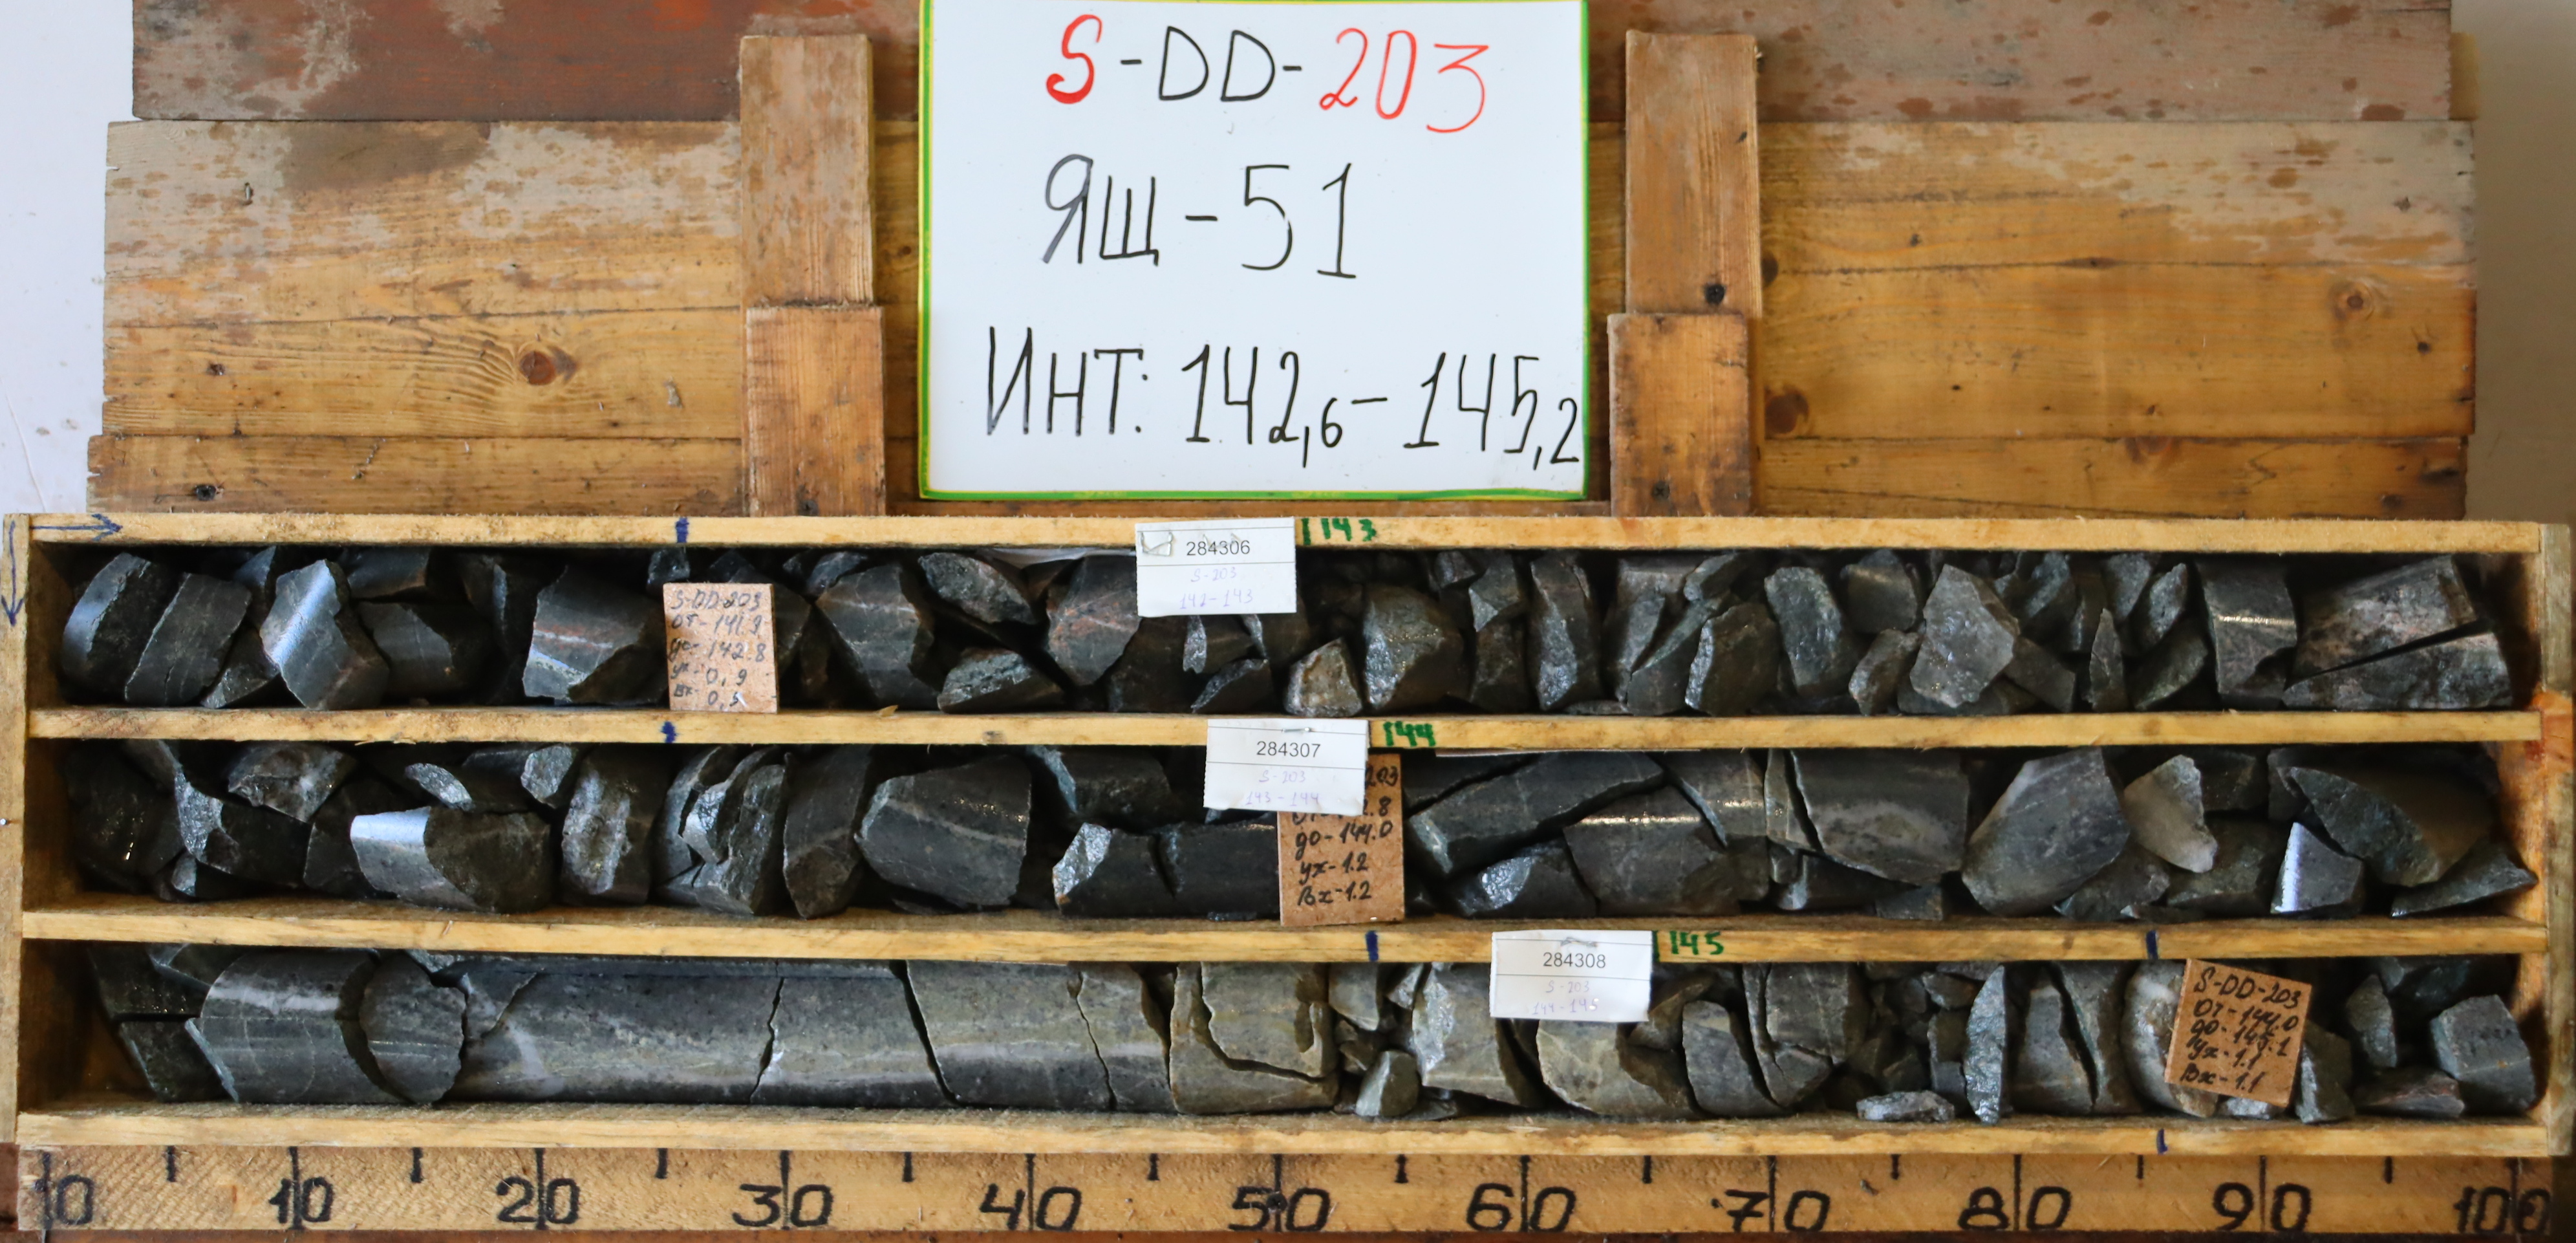 S-DD-203
ЯЩ-51
ИНТ: 142,6-145,2
143
284306
S-203
142-143
S-DD-203
от-141.9
до-142.8
ух-0,9
Вх-0,9
144
284307
S-203
143-144
203
до-144.0
ух-1.2
Вх-1.2
145
284308
S-203
144-145
S-DD-203
от-144.0
до-145.1
ух-1.1
Вх-1.1
0 10 20 30 40 50 60 70 80 90 100